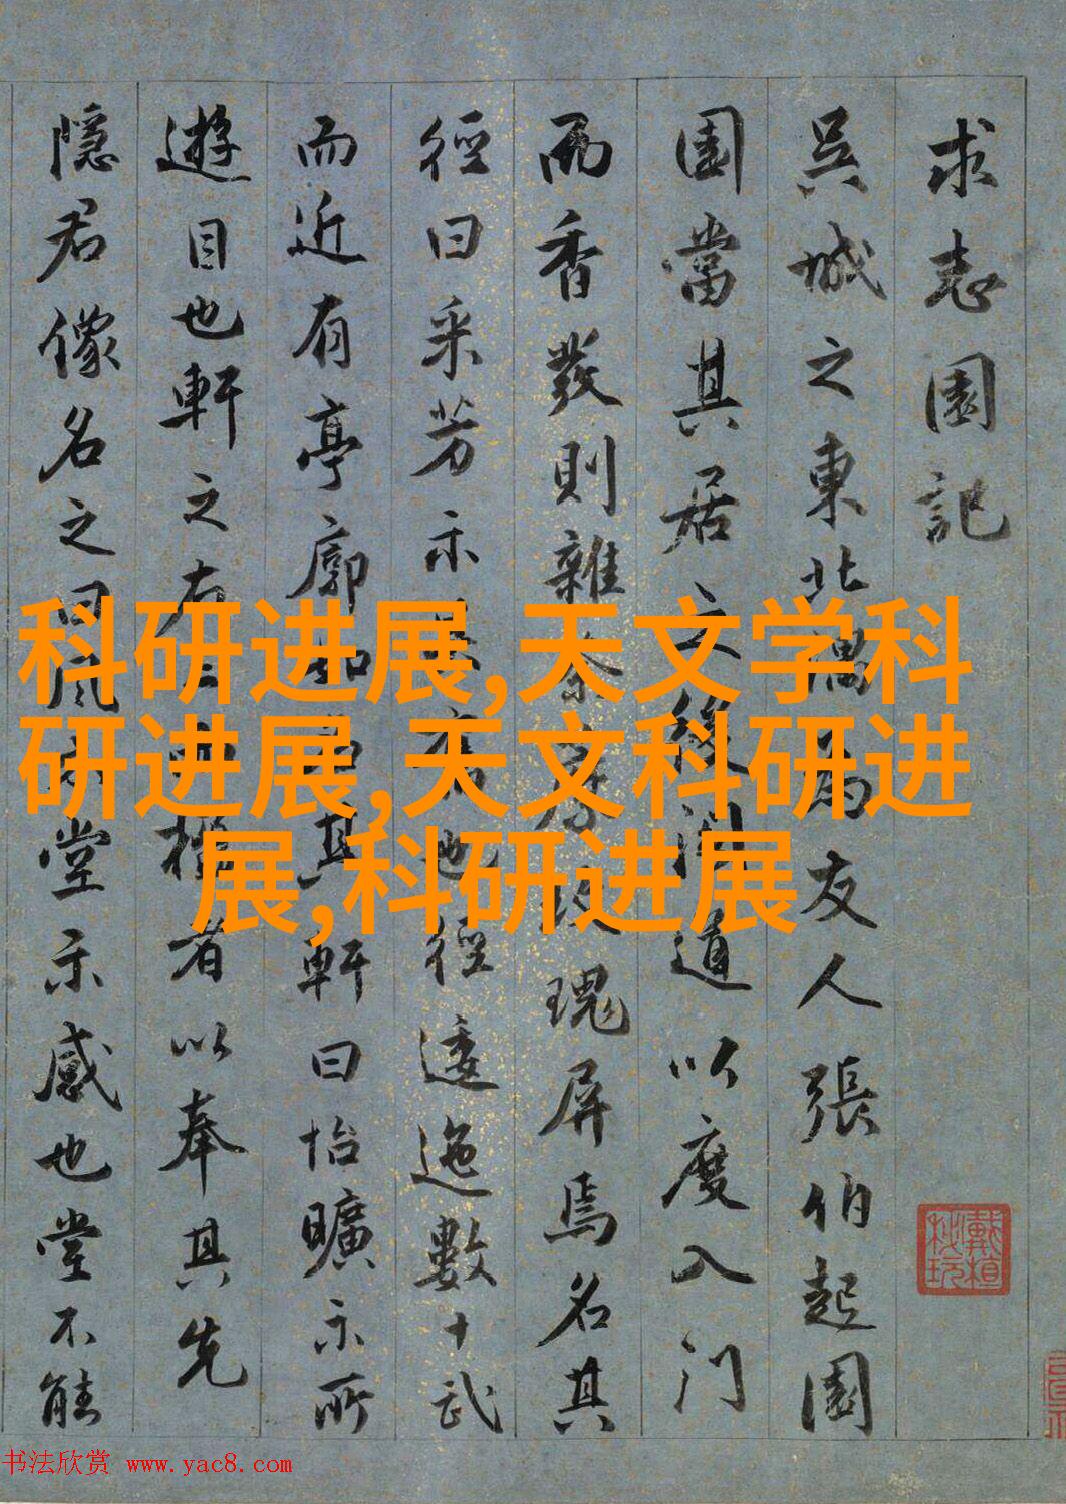 求志園記
吳城之東北隅為友人張伯起園
園當其居之後道以度入門
而香發則雜瑰屏焉名其
徑曰采芳示也徑逶迤數十武
而近有亭廓其軒曰怡曠示所
遊目也軒之右者以奉其先
隱君像名之曰風堂示感也堂不能
科研进展,天文学科
研进展,天文科研进
展,科研进展
书法欣赏 www.yac8.com